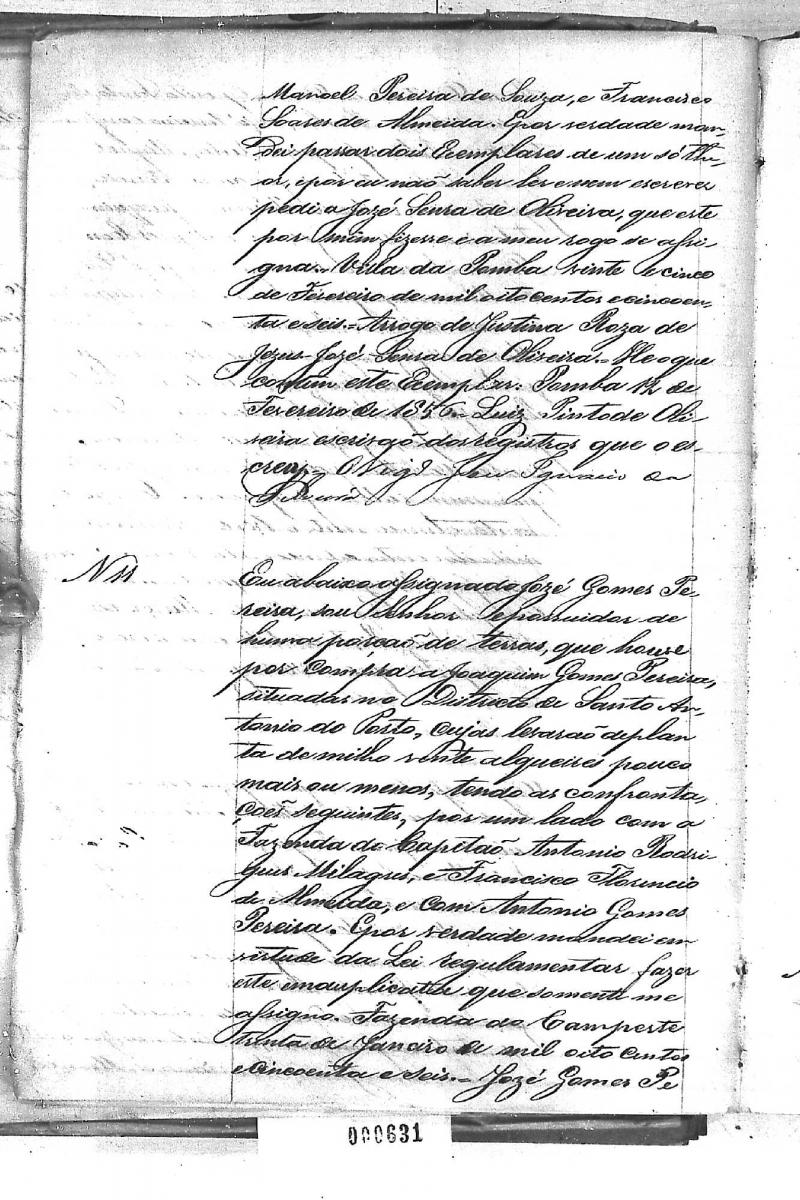 Manoel Pereira de Souza, e Francisco
Soares de Almeida. E por verdade man-
dei passar dois Exemplares de um só the-
or, e por eu não saber ler e nem escrever
pedi a Jozé Senra de Oliveira, que este
por mim fizesse e a meu rogo se assi-
gna. Villa da Pomba vinte e cinco
de Fevereiro de mil oito centos e cincoen-
ta e seis. Arrogo de Justina Roza de
Jezus Jozé Senra de Oliveira. He o que
contem este Exemplar. Pomba 12 de
Fevereiro de 1856. Luiz Pinto de Oli-
veira escrivão dos registros que o es-
crevy. O Vigr.o Ignacio da
N 11
Eu abaixo assignado Jozé Gomes Pe-
reira, sou senhor e possuidor de
huma porcaõ de terras, que houve
por compra a Joaquim Gomes Pereira,
situadas no Districto de Santo An-
tonio do Porto, cujas levaraõ de plan
ta de milho vinte alqueires pouco
mais ou menos, tendo as confronta,
çoẽs seguintes, por um lado com a
Fazenda do Capitaõ Antonio Rodri-
gues Milagres, e Francisco Florencio
de Almeida, e com Antonio Gomes
Pereira. E por verdade mandei em
virtude da Lei regulamentar fazer
este em duplicata que somente me
assigno. Fazenda do Campestre
trinta de Janeiro de mil oito centos
e cincoenta e seis. Jozé Gomes Pe
000631